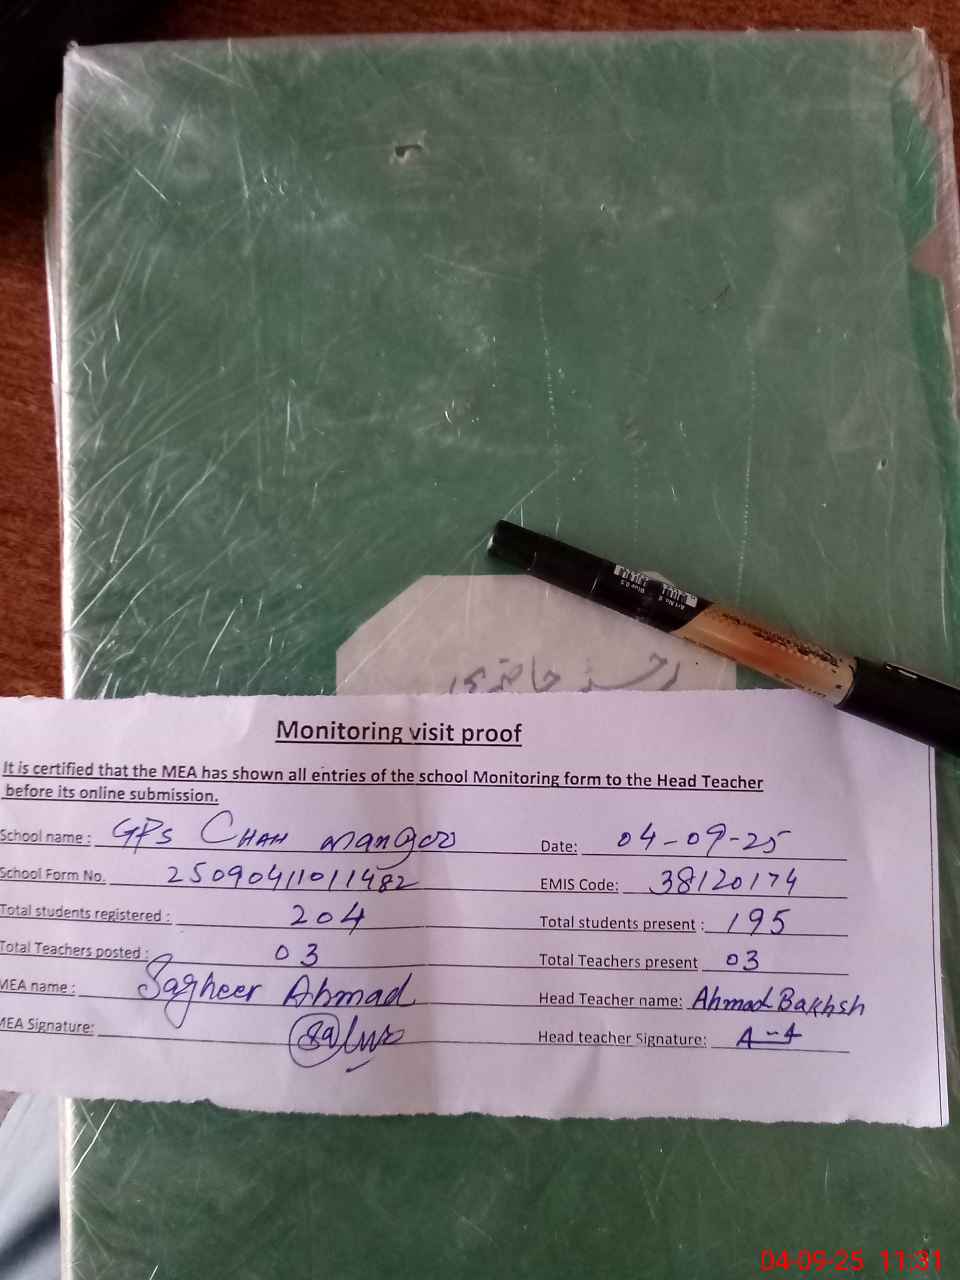 رجسٹر حاضری
Monitoring visit proof
It is certified that the MEA has shown all entries of the school Monitoring form to the Head Teacher
before its online submission.
School name : GPS CHAH mangoo Date: 04-09-25
School Form No. 25090411011482 EMIS Code: 38120174
Total students registered : 204 Total students present : 195
Total Teachers posted : 03 Total Teachers present 03
MEA name : Sagheer Ahmad Head Teacher name: Ahmad Bakhsh
MEA Signature: Head teacher Signature:
04-09-25 11:31